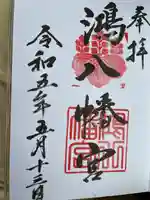 奉拝
鴻八幡宮
令和五年五月十三日